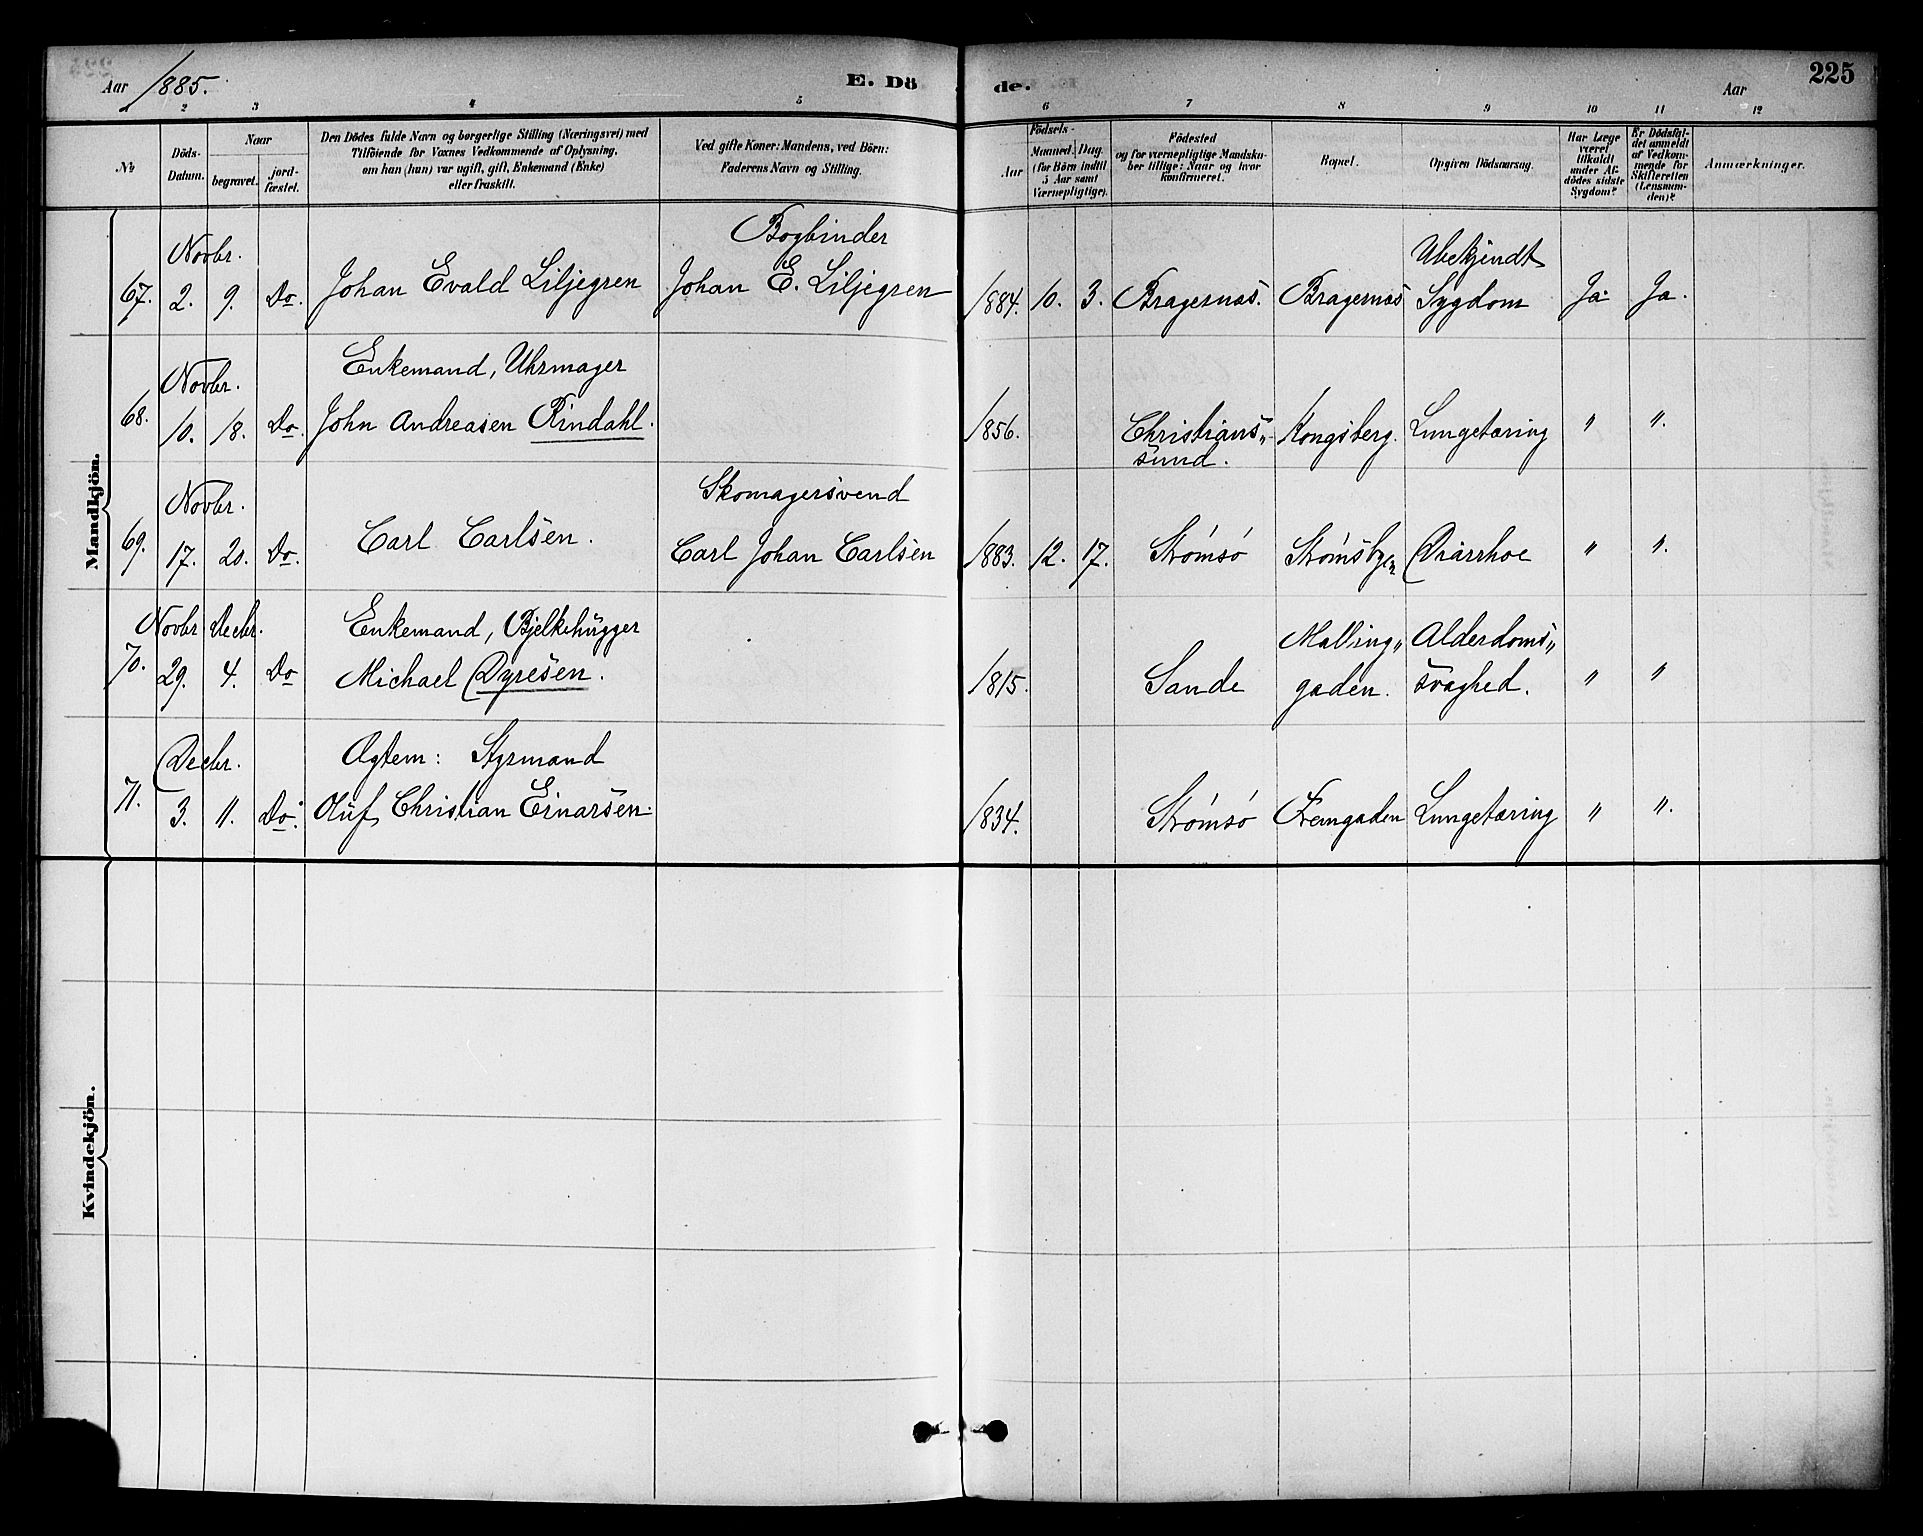 Aar 1885.
E. Dö
de.
Aar
225
2 3 4 5 6 7 8 9 10 11 12
No
Döds-
Datum.
Naar
begravet.
jord-
fæstet.
Den Dödes fulde Navn og borgerlige Stilling (Næringsvei) med
Tilföiende for Voxnes Vedkommende af Oplysning,
om han (hun) var ugift, gift, Enkemand (Enke)
eller fraskilt.
Ved gifte Koner: Mandens, ved Börn:
Faderens Navn og Stilling.
Födsels-
Aar
Maaned. Dag.
(for Börn indtil
5 Aar samt
Værnepligtige).
Födested
og for værnepligtige Mandska-
ber tillige: Naar og hvor
konfirmeret.
Bopæl.
Opgiven Dödsaarsag.
Har Læge
været
tilkaldt
under Af-
dödes sidste
Sygdom?
Er Dödsfal-
det anmeldt
af Vedkom-
mende for
Skifteretten
(Lensman-
den)?
Anmærkninger.
Mandkjön.
Novbr. Bogbinder Ubekjendt
67. 2. 9. Do. Johan Evald Liljegren Johan E. Liljegren 1884. 10. 3. Bragernæs. Bragernæs Sygdom Ja. Ja.
Novbr. Enkemand, Uhrmager
68. 10. 18. Do. John Andreasen Rindahl. 1856. Christians„ Kongsberg. Lungetæring " ".
sund.
Novbr. Skomagersvend
69. 17. 20. Do. Carl Carlsen. Carl Johan Carlsen 1883. 12. 17. Strømsø Strømsbyen Diarrhoe " ".
Novbr Decbr. Enkemand, Bjelkehugger Malling„ Alderdoms„
70. 29. 4. Do Michael Dyresen. 1815. Sande gaden. svaghed. " "
Decbr. Ægtem: Styrmand
71. 3. 11. Do. Oluf Christian Einarsen. 1834. Strømsø Fremgaden Lungetæring " ".
Kvindekjön.